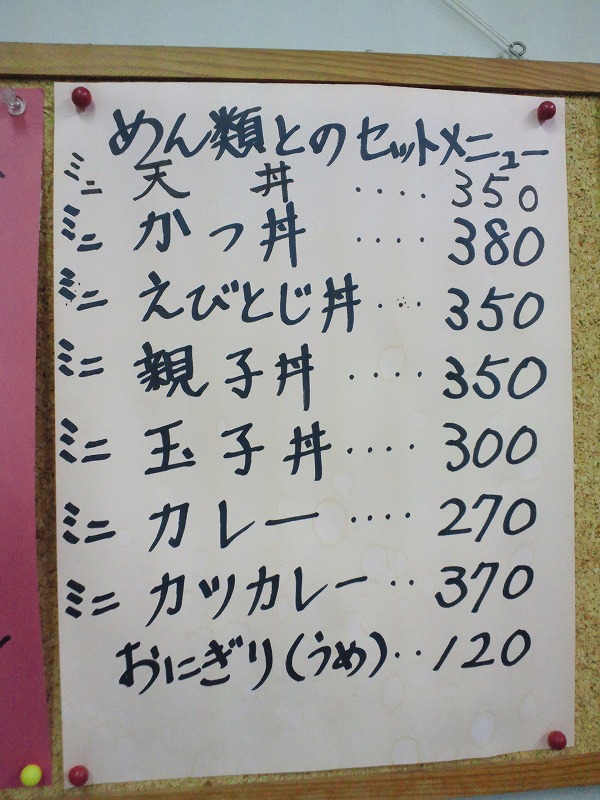 めん類とのセットメニュー
ミニ 天 丼 ････ 350
ミニ かつ丼 ････ 380
ミニ えびとじ丼 ････ 350
ミニ 親子丼 ････ 350
ミニ 玉子丼 ････ 300
ミニ カレー ････ 270
ミニ カツカレー ･･ 370
おにぎり(うめ) ･･ 120